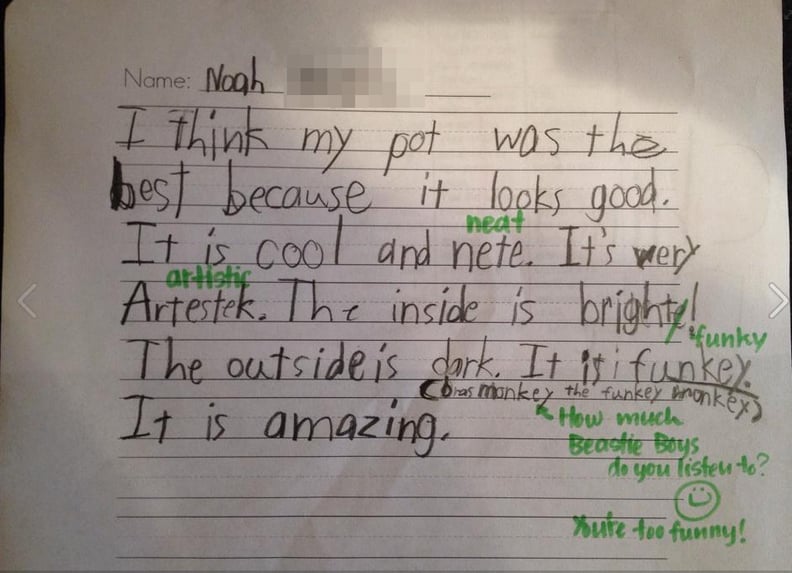 Name: Noah
I think my pot was the
best because it looks good.
neat
It is cool and nete. It's very
artistic
Artestek. The inside is bright!
funky
The outside is dark. It is funkey.
(bras monkey the funkey monkey)
It is amazing.
How much
Beastie Boys
do you listen to?
You're too funny!